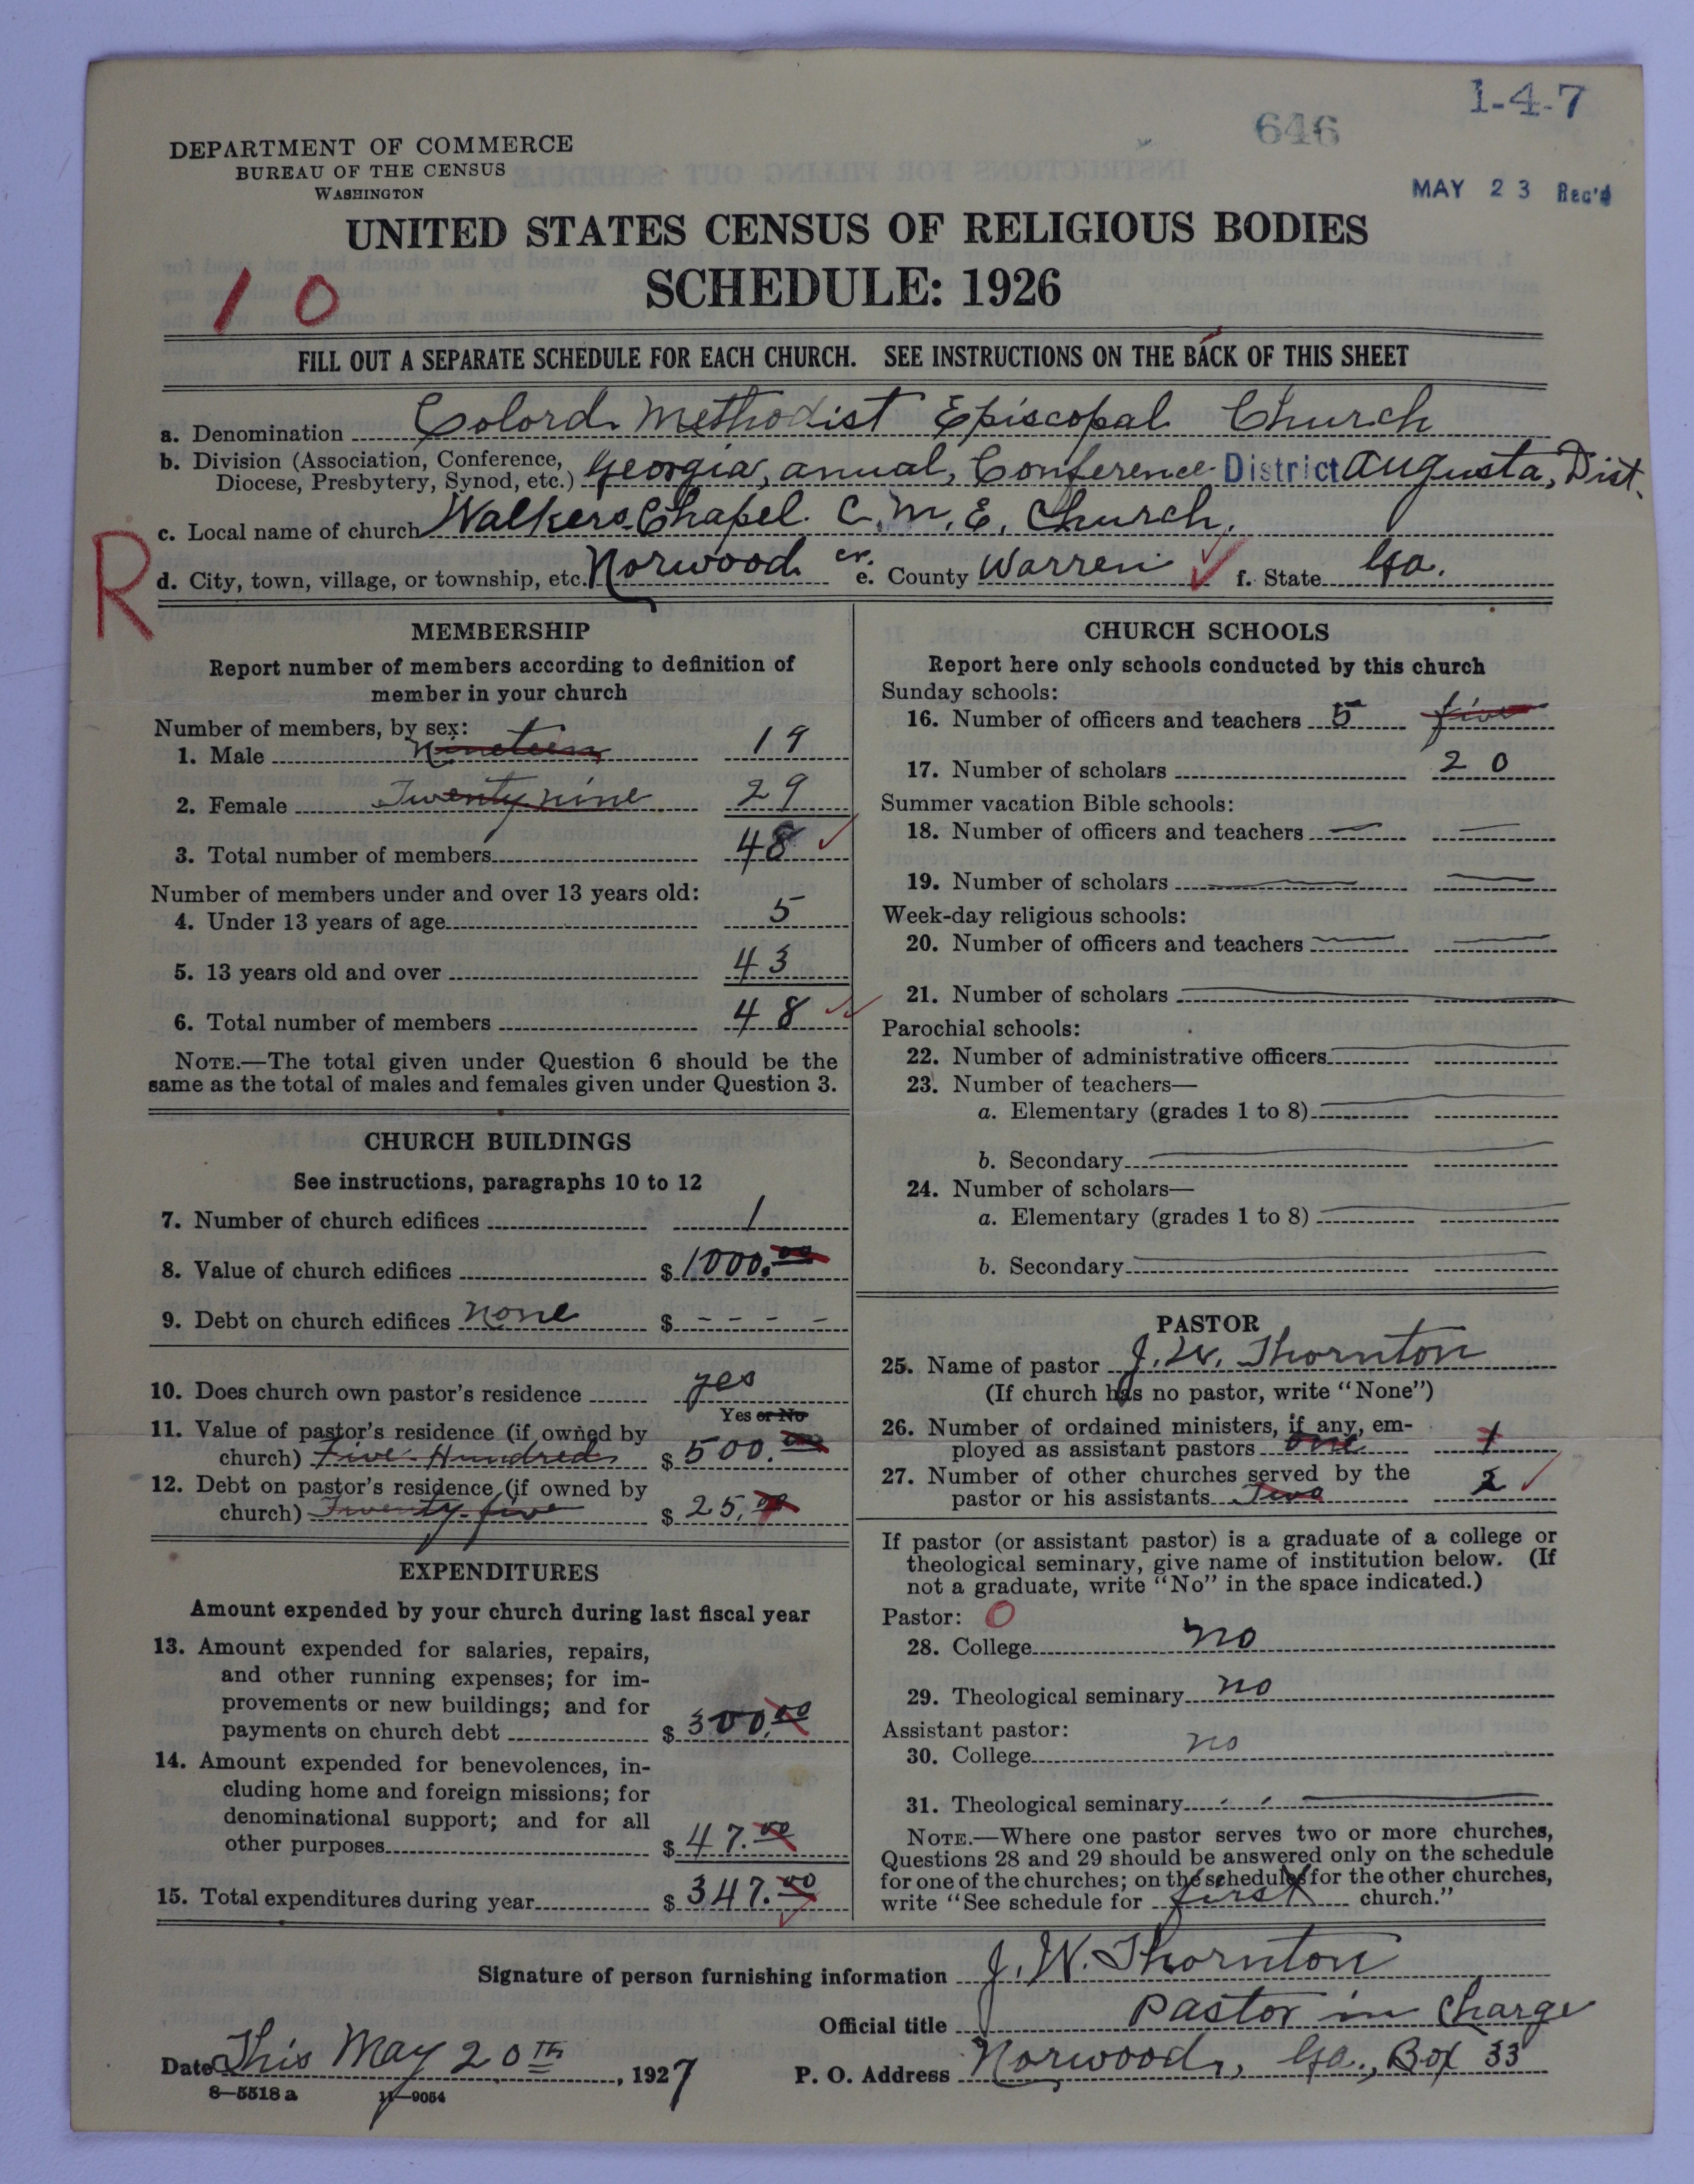 1-4-7
646
MAY 23 Rec'd
DEPARTMENT OF COMMERCE
BUREAU OF THE CENSUS
WASHINGTON
UNITED STATES CENSUS OF RELIGIOUS BODIES
SCHEDULE: 1926
10
FILL OUT A SEPARATE SCHEDULE FOR EACH CHURCH. SEE INSTRUCTIONS ON THE BACK OF THIS SHEET
a. Denomination Colord Methodist Episcopal Church
b. Division (Association, Conference, Diocese, Presbytery, Synod, etc.) Georgia, anual, Conference District Augusta, Dist.
c. Local name of church Walkers Chapel C.M.E. Church.
R
d. City, town, village, or township, etc. Norwood cr. e. County Warren f. State Ga.
MEMBERSHIP
Report number of members according to definition of
member in your church
Number of members, by sex:
1. Male Nineteen 19
2. Female Twenty nine 29
3. Total number of members 48
Number of members under and over 13 years old:
4. Under 13 years of age 5
5. 13 years old and over 43
6. Total number of members 48
NOTE.—The total given under Question 6 should be the
same as the total of males and females given under Question 3.
CHURCH BUILDINGS
See instructions, paragraphs 10 to 12
7. Number of church edifices 1
8. Value of church edifices $ 1000.00
9. Debt on church edifices none $ - - - -
10. Does church own pastor's residence yes
Yes or No
11. Value of pastor's residence (if owned by
church) Five Hundred $ 500.00
12. Debt on pastor's residence (if owned by
church) Twenty-five $ 25.00
EXPENDITURES
Amount expended by your church during last fiscal year
13. Amount expended for salaries, repairs,
and other running expenses; for im-
provements or new buildings; and for
payments on church debt $ 300.00
14. Amount expended for benevolences, in-
cluding home and foreign missions; for
denominational support; and for all
other purposes $ 47.00
15. Total expenditures during year $ 347.00
CHURCH SCHOOLS
Report here only schools conducted by this church
Sunday schools:
16. Number of officers and teachers 5 five
17. Number of scholars 20
Summer vacation Bible schools:
18. Number of officers and teachers
19. Number of scholars
Week-day religious schools:
20. Number of officers and teachers
21. Number of scholars
Parochial schools:
22. Number of administrative officers
23. Number of teachers—
a. Elementary (grades 1 to 8)
b. Secondary
24. Number of scholars—
a. Elementary (grades 1 to 8)
b. Secondary
PASTOR
25. Name of pastor J. W. Thornton
(If church has no pastor, write "None")
26. Number of ordained ministers, if any, em-
ployed as assistant pastors one 1
27. Number of other churches served by the
pastor or his assistants Two 2
If pastor (or assistant pastor) is a graduate of a college or
theological seminary, give name of institution below. (If
not a graduate, write "No" in the space indicated.)
Pastor: 0
28. College no
29. Theological seminary no
Assistant pastor:
30. College no
31. Theological seminary
NOTE.—Where one pastor serves two or more churches,
Questions 28 and 29 should be answered only on the schedule
for one of the churches; on the schedules for the other churches,
write "See schedule for first church."
Signature of person furnishing information J. W. Thornton
Official title Pastor in Charge
Date This May 20th, 1927 P. O. Address Norwood, Ga., Box 33
8—5518 a 11—9054